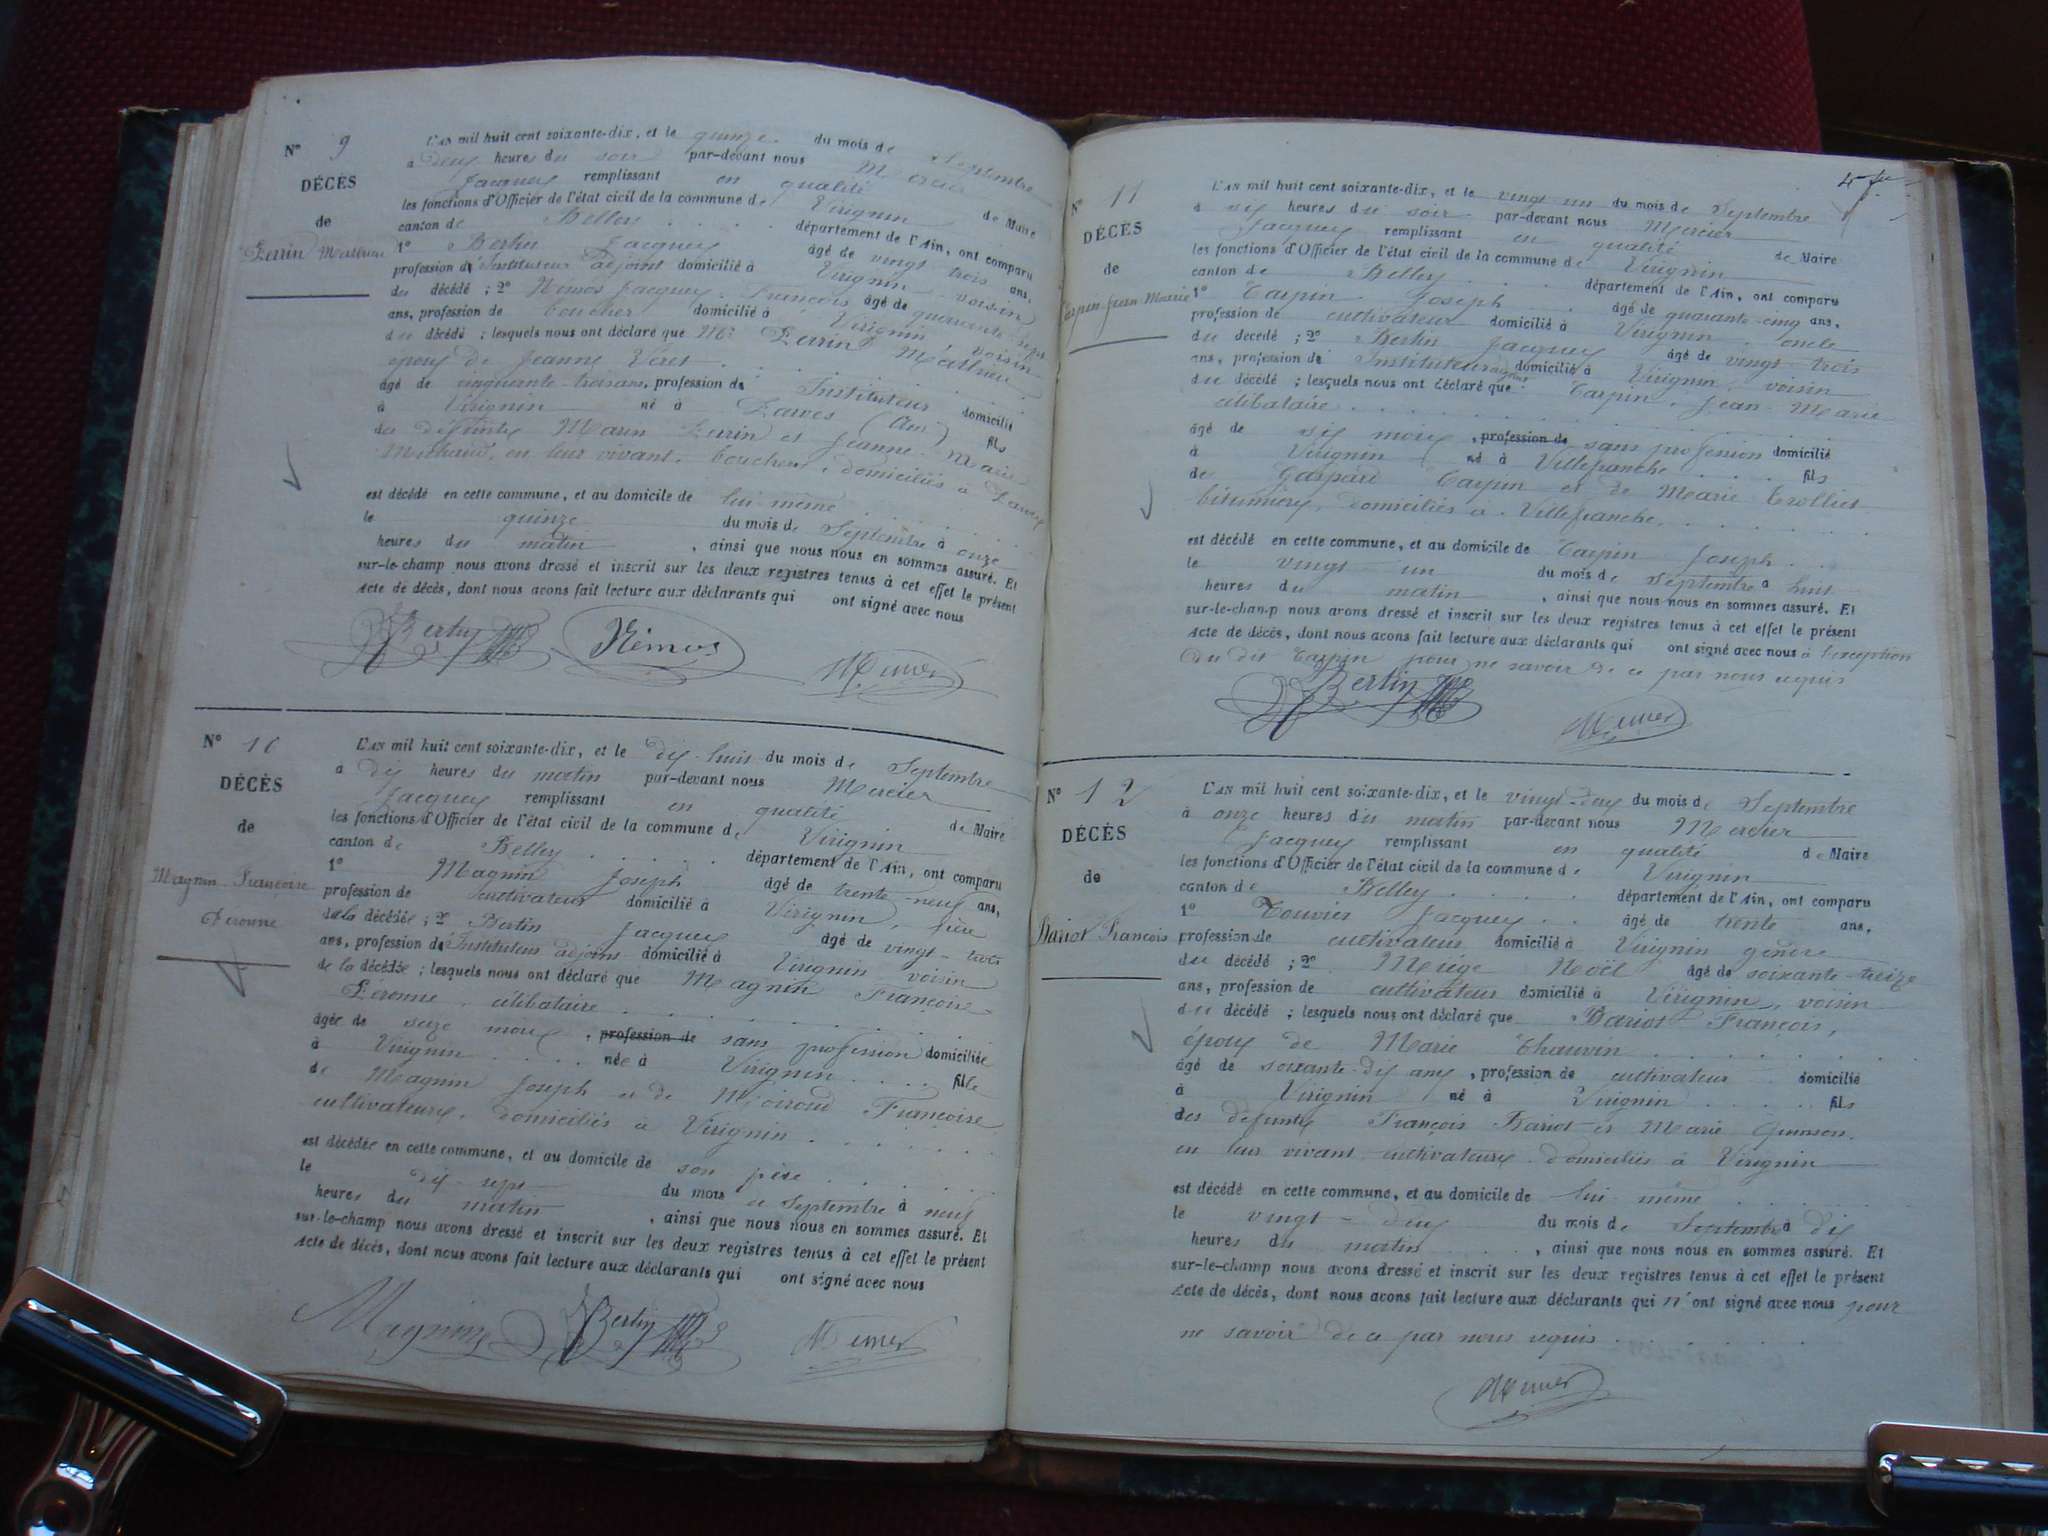 N° 9
DÉCÈS
de
Perrin Mathieu
L'AN mil huit cent soixante-dix, et le quinze du mois de Septembre
à deux heures du soir par-devant nous Mercier
Jacques remplissant en qualité de Maire
les fonctions d'Officier de l'état civil de la commune de Virignin
canton de Belley département de l'Ain, ont comparu
1° Bertin Jacques âgé de vingt trois ans,
profession d'Instituteur adjoint domicilié à Virignin voisin
du décédé ; 2° Némos Jacques François âgé de quarante sept
ans, profession de boucher domicilié à Virignin voisin
du décédé ; lesquels nous ont déclaré que Mr Perrin Mathieu
époux de Jeanne
âgé de cinquante-trois ans, profession d' Instituteur domicilié
à Virignin né à (Ain) fils
des défunts Marin Perrin et Jeanne-Marie
Michaud, en leur vivant, bouchers, domiciliés à
est décédé en cette commune, et au domicile de lui-même
le quinze du mois de Septembre à onze
heures du matin, ainsi que nous nous en sommes assuré. Et
sur-le-champ nous avons dressé et inscrit sur les deux registres tenus à cet effet le présent
acte de décès, dont nous avons fait lecture aux déclarants qui ont signé avec nous
Bertin Némos Mercier
N° 10
DÉCÈS
de
Magnin Françoise
Péronne
L'AN mil huit cent soixante-dix, et le dix-huit du mois de Septembre
à dix heures du matin par-devant nous Mercier
Jacques remplissant en qualité de Maire
les fonctions d'Officier de l'état civil de la commune de Virignin
canton de Belley département de l'Ain, ont comparu
1° Magnin Joseph âgé de trente-neuf ans,
profession de cultivateur domicilié à Virignin, père
de la décédée ; 2° Bertin Jacques âgé de vingt-trois
ans, profession d'Instituteur adjoint domicilié à Virignin voisin
de la décédée ; lesquels nous ont déclaré que Magnin Françoise
Péronne, célibataire
âgée de seize mois, profession de sans profession domiciliée
à Virignin née à Virignin fille
de Magnin Joseph et de Françoise
cultivateurs, domiciliés à Virignin
est décédée en cette commune, et au domicile de son père
le dix-sept du mois de Septembre à neuf
heures du matin, ainsi que nous nous en sommes assuré. Et
sur-le-champ nous avons dressé et inscrit sur les deux registres tenus à cet effet le présent
acte de décès, dont nous avons fait lecture aux déclarants qui ont signé avec nous
Magnin Bertin Mercier
N° 11
DÉCÈS
de
Carpin Jean Marie
L'AN mil huit cent soixante-dix, et le vingt un du mois de Septembre
à six heures du soir par-devant nous Mercier
Jacques remplissant en qualité de Maire
les fonctions d'Officier de l'état civil de la commune de Virignin
canton de Belley département de l'Ain, ont comparu
1° Carpin Joseph âgé de quarante-cinq ans,
profession de cultivateur domicilié à Virignin oncle
du décédé ; 2° Bertin Jacques âgé de vingt-trois
ans, profession d' Instituteur adjoint domicilié à Virignin, voisin
du décédé ; lesquels nous ont déclaré que Carpin Jean-Marie
célibataire
âgé de six mois, profession de sans profession domicilié
à Virignin né à Villefranche fils
de Gaspard Carpin et de Marie Trolliet
bitumiers, domiciliés à Villefranche
est décédé en cette commune, et au domicile de Carpin Joseph
le vingt-un du mois de Septembre à huit
heures du matin, ainsi que nous nous en sommes assuré. Et
sur-le-champ nous avons dressé et inscrit sur les deux registres tenus à cet effet le présent
acte de décès, dont nous avons fait lecture aux déclarants qui ont signé avec nous à l'exception
du dit Carpin pour ne savoir de ce par nous requis
Bertin Mercier
N° 12
DÉCÈS
de
Bariot François
L'AN mil huit cent soixante-dix, et le vingt-deux du mois de Septembre
à onze heures du matin par-devant nous Mercier
Jacques remplissant en qualité de Maire
les fonctions d'Officier de l'état civil de la commune de Virignin
canton de Belley département de l'Ain, ont comparu
1° Touvier Jacques âgé de trente ans,
profession de cultivateur domicilié à Virignin gendre
du décédé ; 2° Mérige Noël âgé de soixante-treize
ans, profession de cultivateur domicilié à Virignin, voisin
du décédé ; lesquels nous ont déclaré que Bariot François,
époux de Marie Chauvin
âgé de soixante-dix ans, profession de cultivateur domicilié
à Virignin né à Virignin fils
des défunts François Bariot et Marie Guinson
en leur vivant cultivateurs domiciliés à Virignin
est décédé en cette commune, et au domicile de lui-même
le vingt-deux du mois de Septembre à dix
heures du matin, ainsi que nous nous en sommes assuré. Et
sur-le-champ nous avons dressé et inscrit sur les deux registres tenus à cet effet le présent
acte de décès, dont nous avons fait lecture aux déclarants qui n'ont signé avec nous pour
ne savoir de ce par nous requis
Mercier